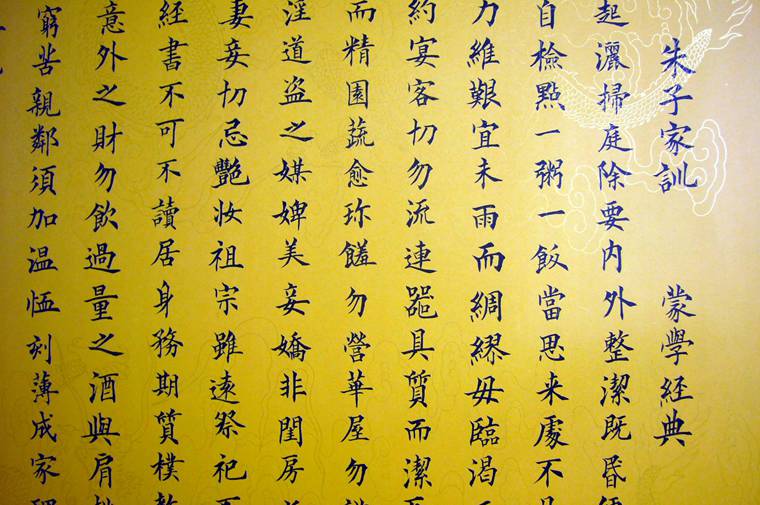 朱子家訓 蒙學經典
起灑掃庭除要内外整潔既昏
自檢點一粥一飯當思来處不
力維艱宜未雨而綢繆毋臨渴
約宴客切勿流連器具質而潔
而精園蔬愈珎饈勿營華屋勿
淫道盗之媒婢美妾嬌非閨房
妻妾切忌艷妝祖宗雖遠祭祀
經書不可不讀居身務期質樸
意外之財勿飲過量之酒與肩
窮苦親鄰須加温恤刻薄成家